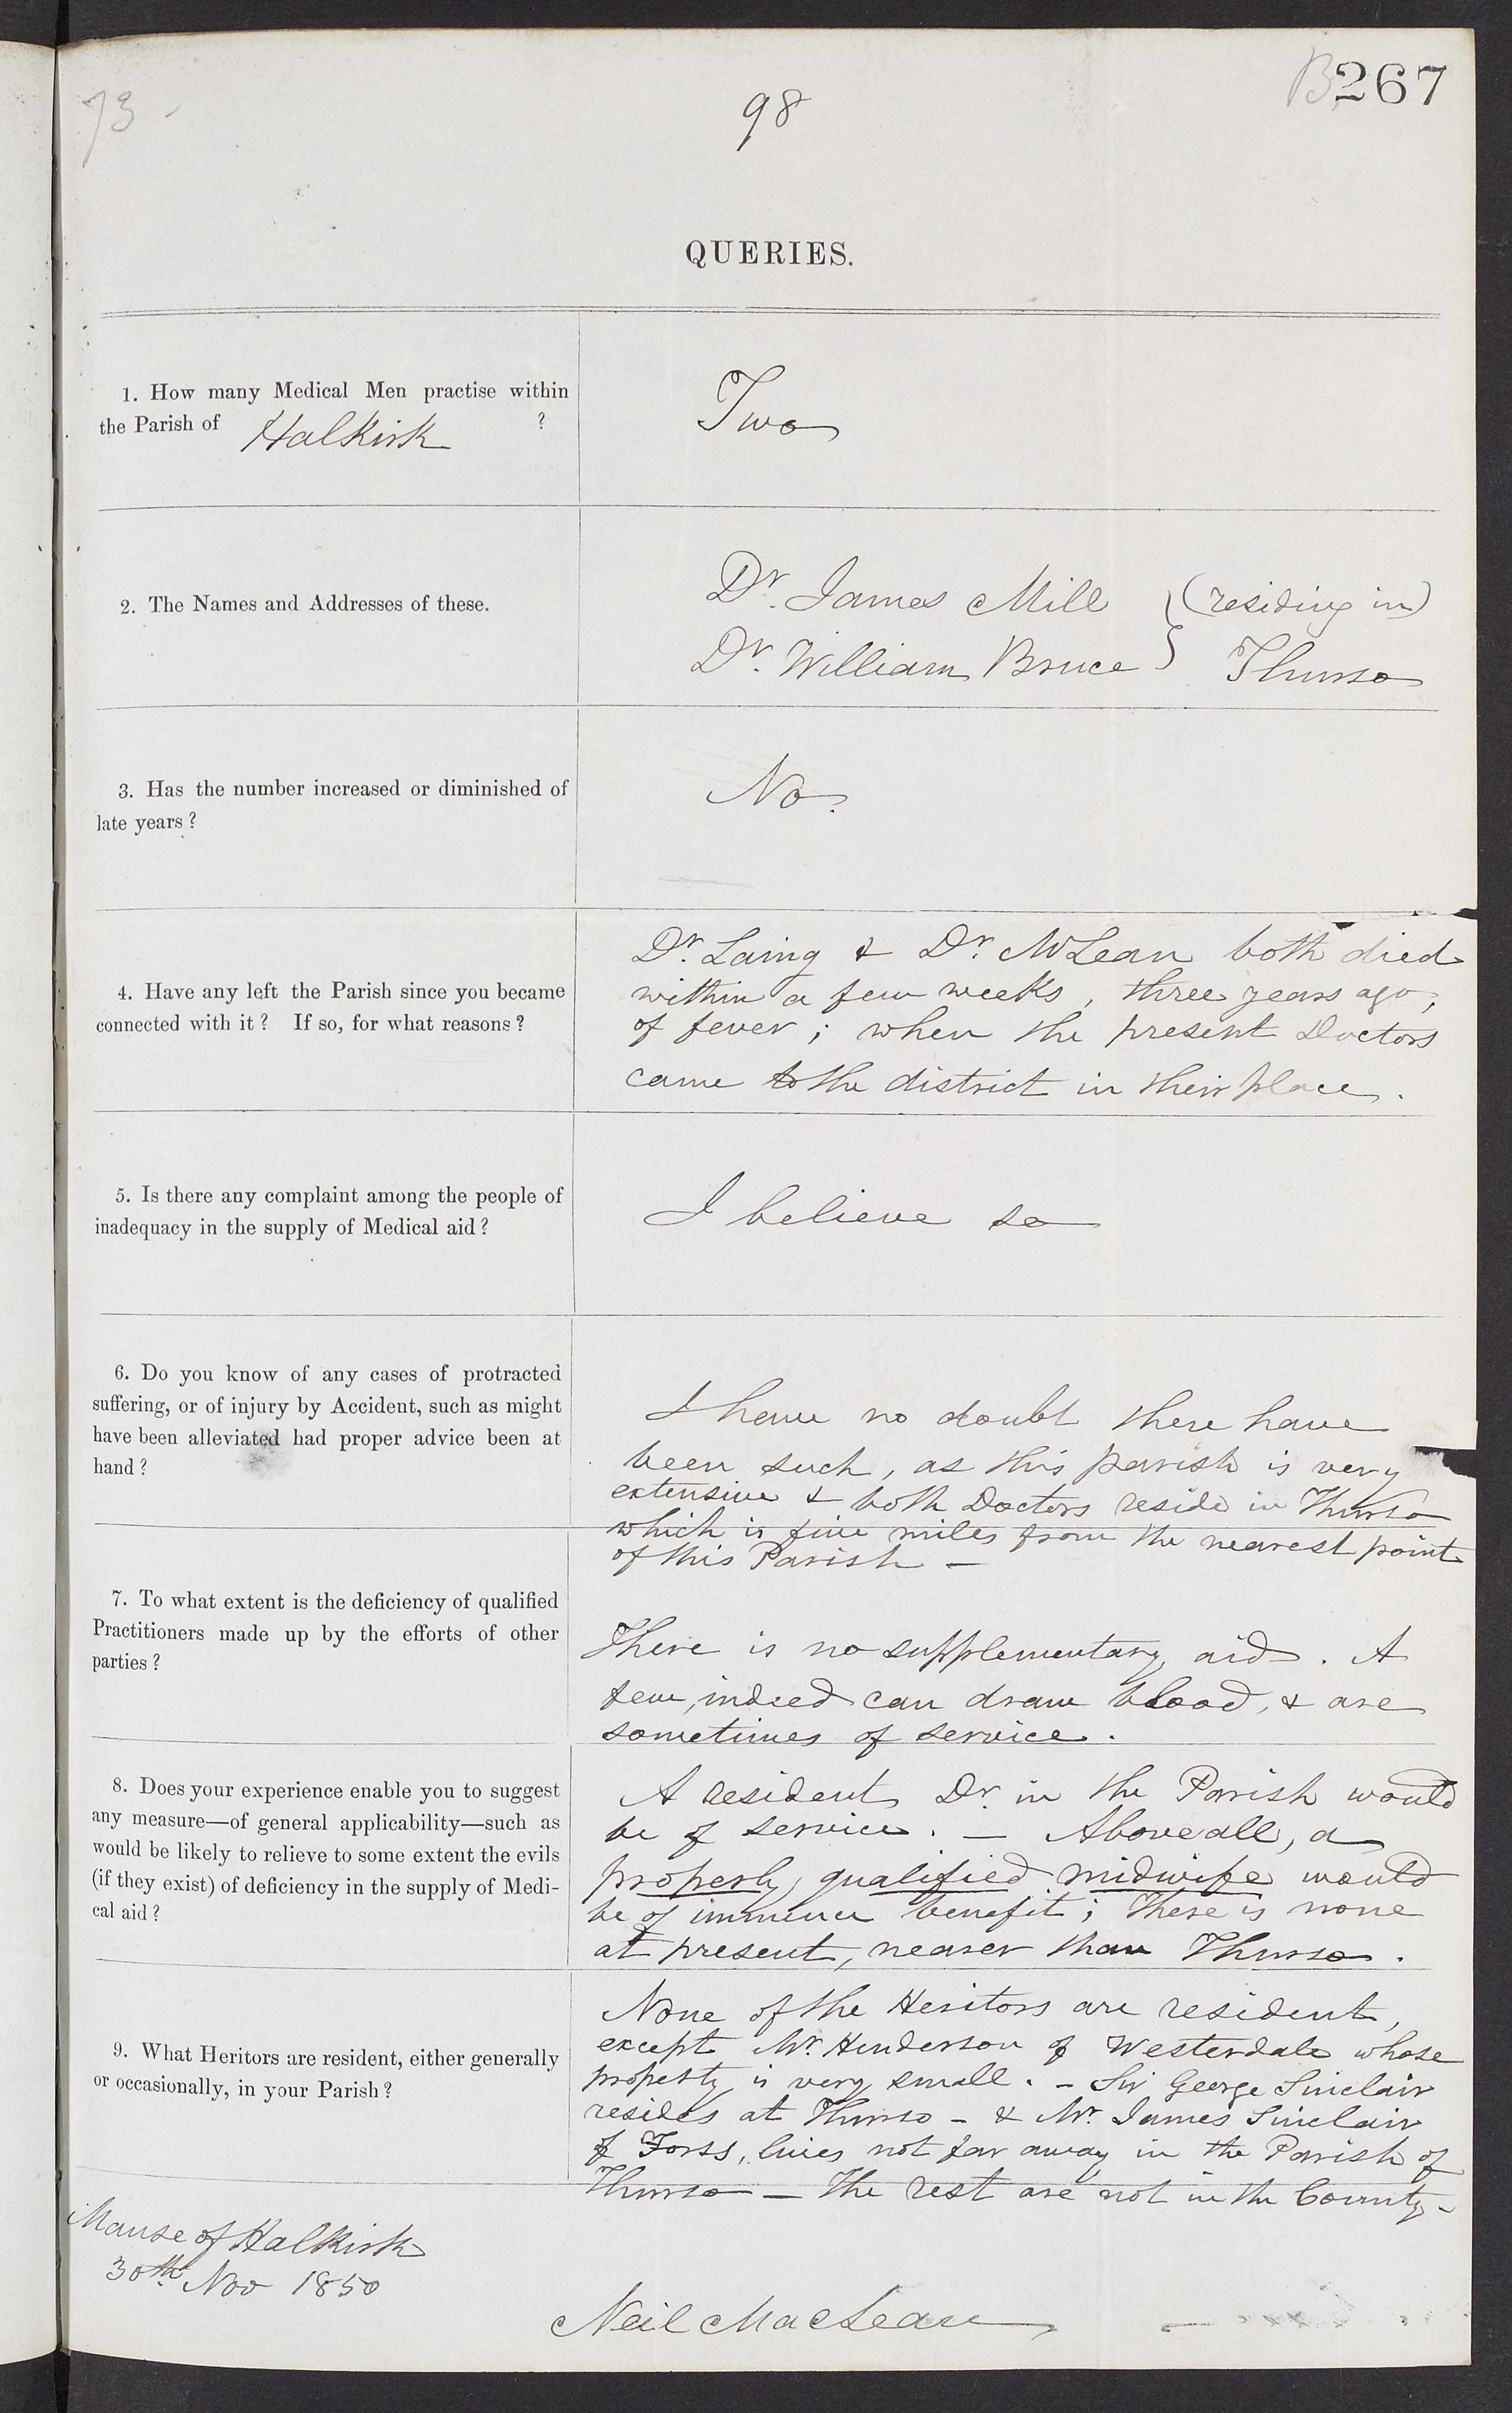 73 -
98
B267
QUERIES.
1. How many Medical Men practise within
the Parish of Halkirk ?
Two
2. The Names and Addresses of these.
Dr. James Mill } (residing in)
Dr. William Bruce } Thurso
3. Has the number increased or diminished of
late years ?
No.
4. Have any left the Parish since you became
connected with it ? If so, for what reasons ?
Dr. Laing & Dr. McLean both died
within a few weeks, three years ago,
of fever ; when the present Doctors
came to the district in their place.
5. Is there any complaint among the people of
inadequacy in the supply of Medical aid ?
I believe so
6. Do you know of any cases of protracted
suffering, or of injury by Accident, such as might
have been alleviated had proper advice been at
hand ?
I have no doubt there have
been such, as this parish is very
extensive & both Doctors reside in Thurso
which is five miles from the nearest point
of this Parish —
7. To what extent is the deficiency of qualified
Practitioners made up by the efforts of other
parties ?
There is no supplementary aid. A
few, indeed can draw blood, & are
sometimes of service.
8. Does your experience enable you to suggest
any measure—of general applicability—such as
would be likely to relieve to some extent the evils
(if they exist) of deficiency in the supply of Medi-
cal aid ?
A resident Dr. in the Parish would
be of service. — Above all, a
properly, qualified midwife would
be of immense benefit ; there is none
at present, nearer than Thurso.
9. What Heritors are resident, either generally
or occasionally, in your Parish ?
None of the Heritors are resident,
except Mr. Henderson of Westerdale whose
property is very small. – Sir George Sinclair
resides at Thurso – & Mr. James Sinclair
of Forss, lives not far away in the Parish of
Thurso — The rest are not in the County –
Manse of Halkirk
30th. Nov 1850
Neil MacLean